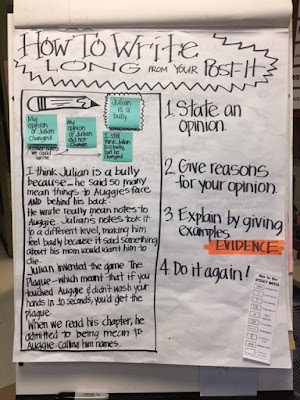 How To Write
LONG FROM YOUR POST-IT
Julian
is a
bully
My
opinion
of Julian
changed.
My
opinion
of Julian
did not
change.
I still
think Julian
is a bully,
but he
changed.
Another note
we could
write
I think Julian is a bully
because he said so many
mean things to Auggie's face
AND behind his back.
He wrote really mean notes to
Auggie. Julian's notes took it
to a different level, making him
feel badly because it said something
about his mom would want him to
die.
Julian invented the game The
Plague - which meant that if you
touched Auggie & didn't wash your
hands in 30 seconds, you'd get the
plague.
When we read his chapter, he
admitted to being mean to
Auggie calling him names.
1. State an
opinion.
2. Give reasons
for your opinion.
3 Explain by giving
examples
EVIDENCE
4. Do it again!
STICKY NOTES